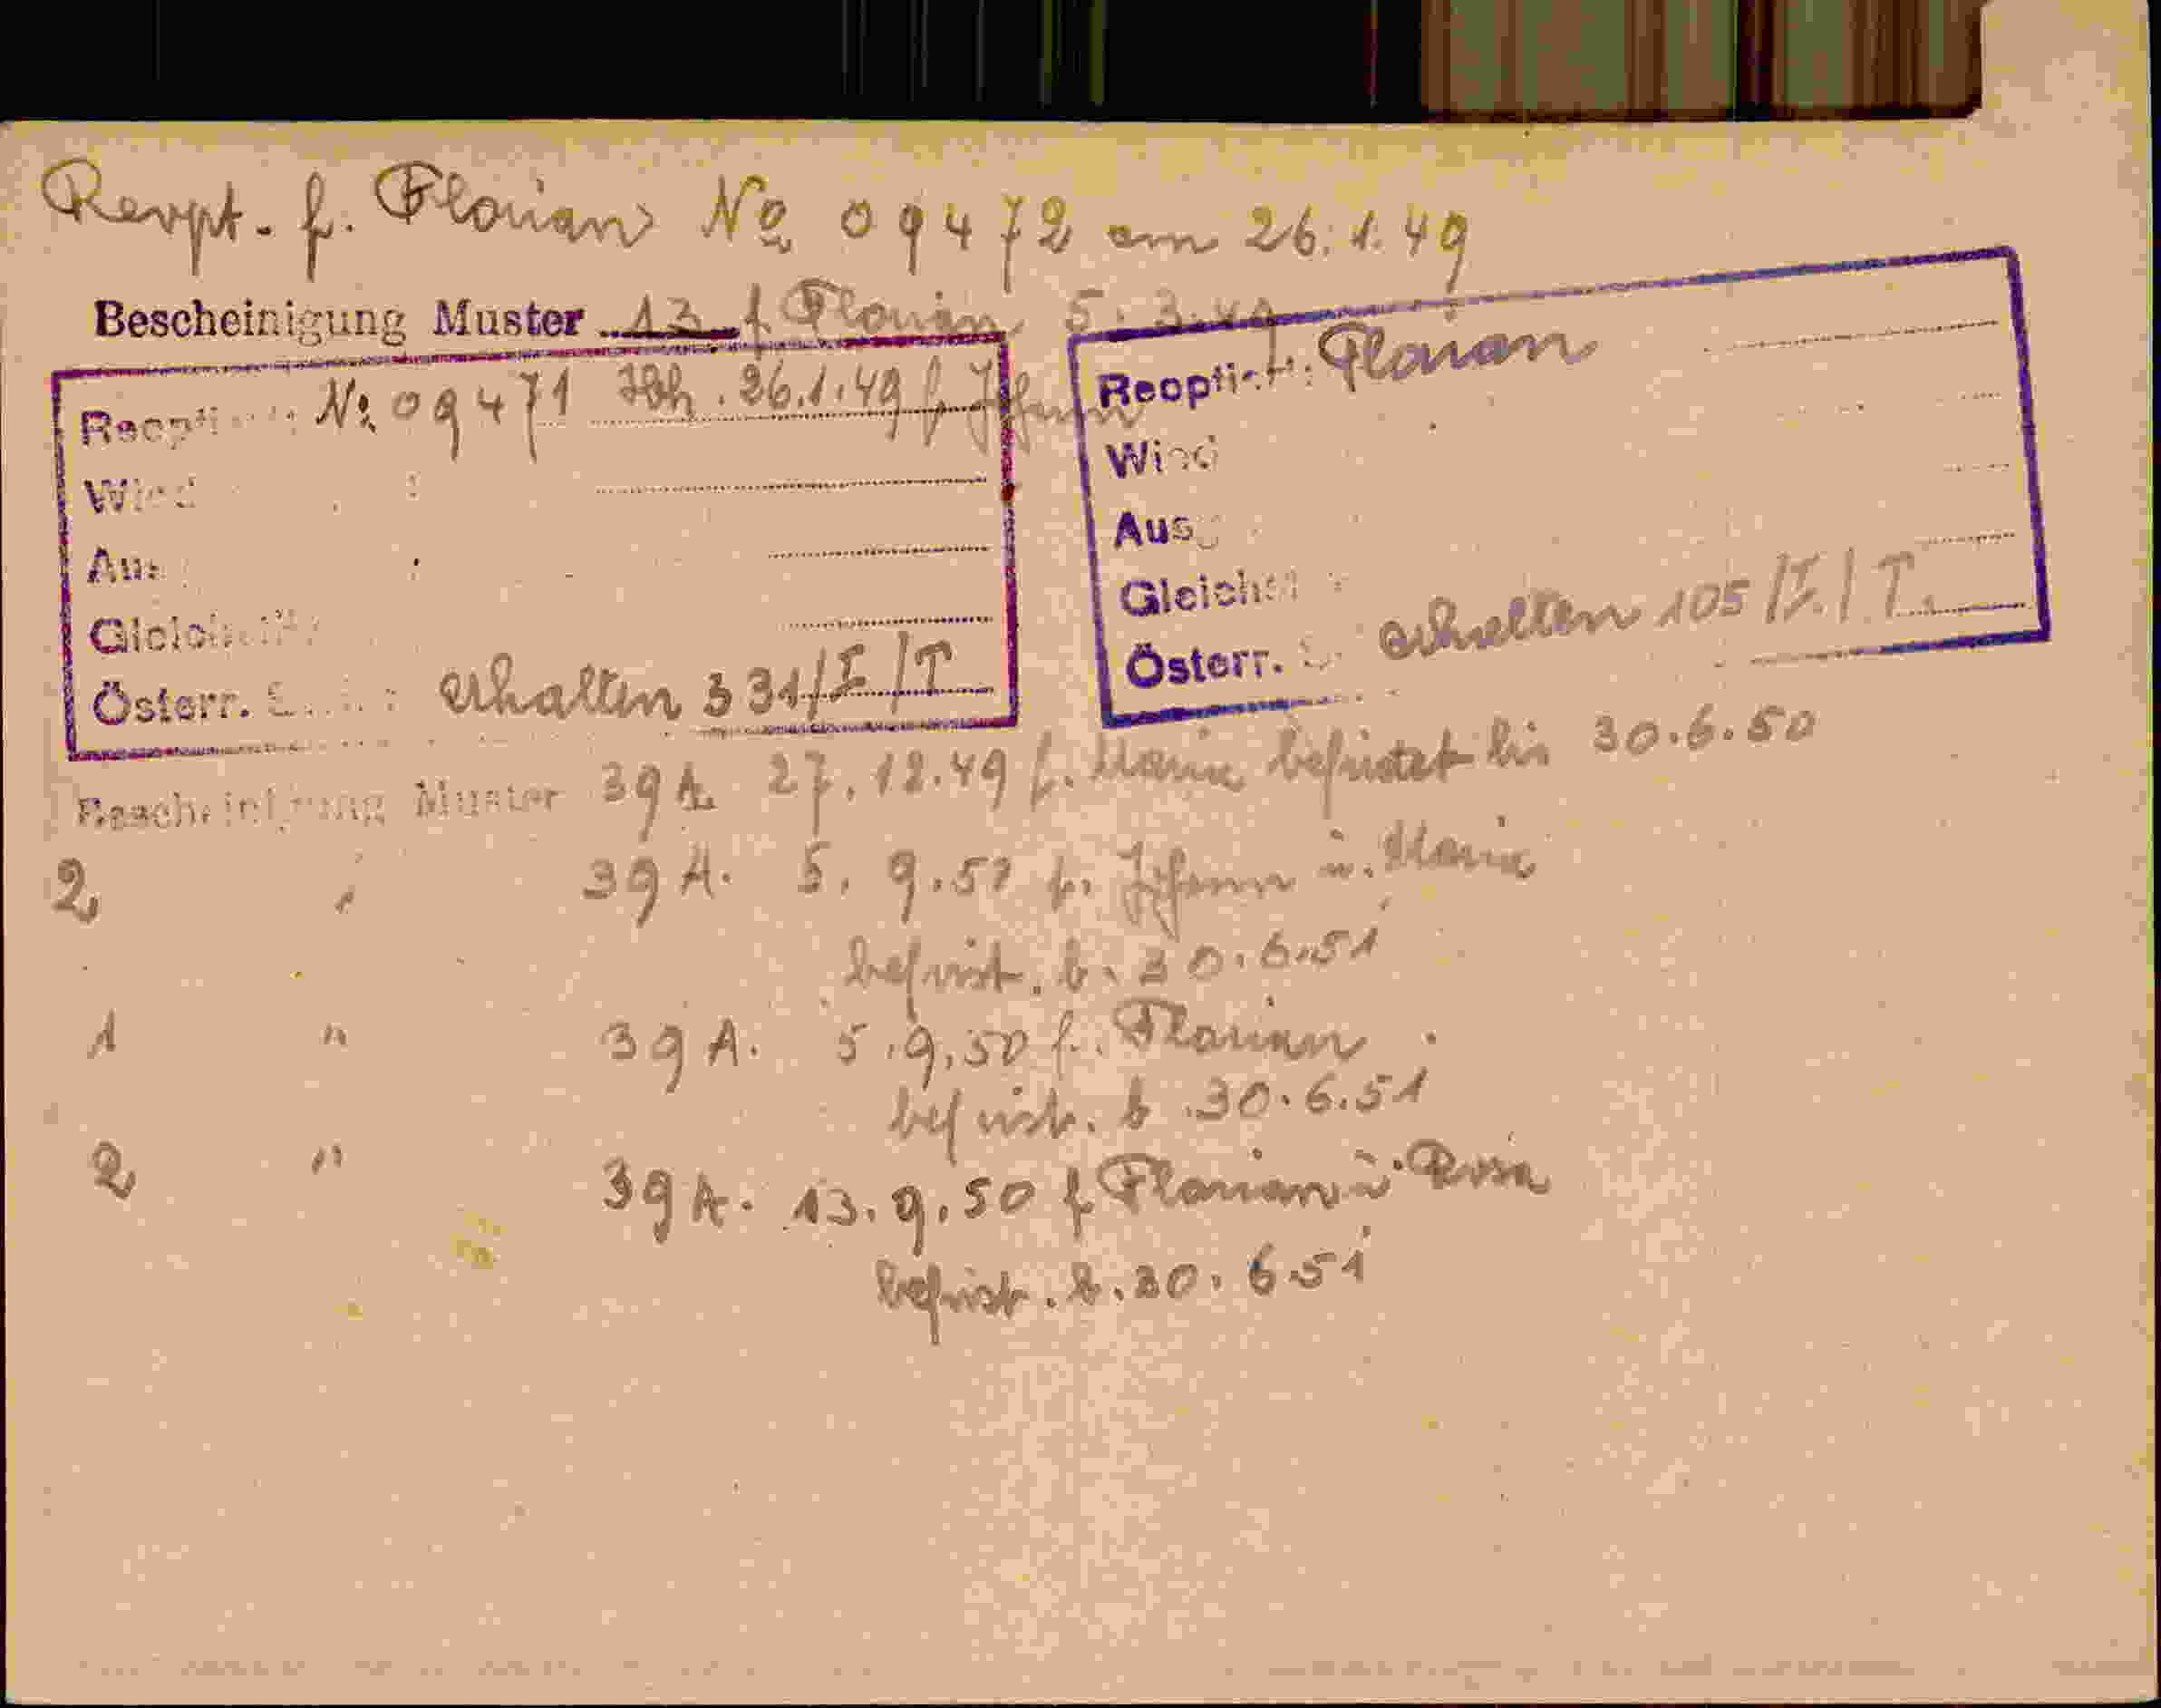 Reopt. f. Florian № 09472 am 26.1.49
Bescheinigung Muster 13 f. Florian 5.3.49
№ 09471 26.1.49 f. Johann
Österr.
erhalten 331/I/T
Reopti Florian
Österr.
erhalten 105/I./T.
Bescheinigung Muster 39 A 27.12.49 f. Maria befristet bis 30.6.50
2 " 39 A. 5.9.50 f. Johann u. Maria
befrist. b. 30.6.51
1 " 39 A. 5.9.50 f. Florian
befrist. b. 30.6.51
2 " 39 A. 13.9.50 f Florian u. Rosa
befrist. b. 30.6.51